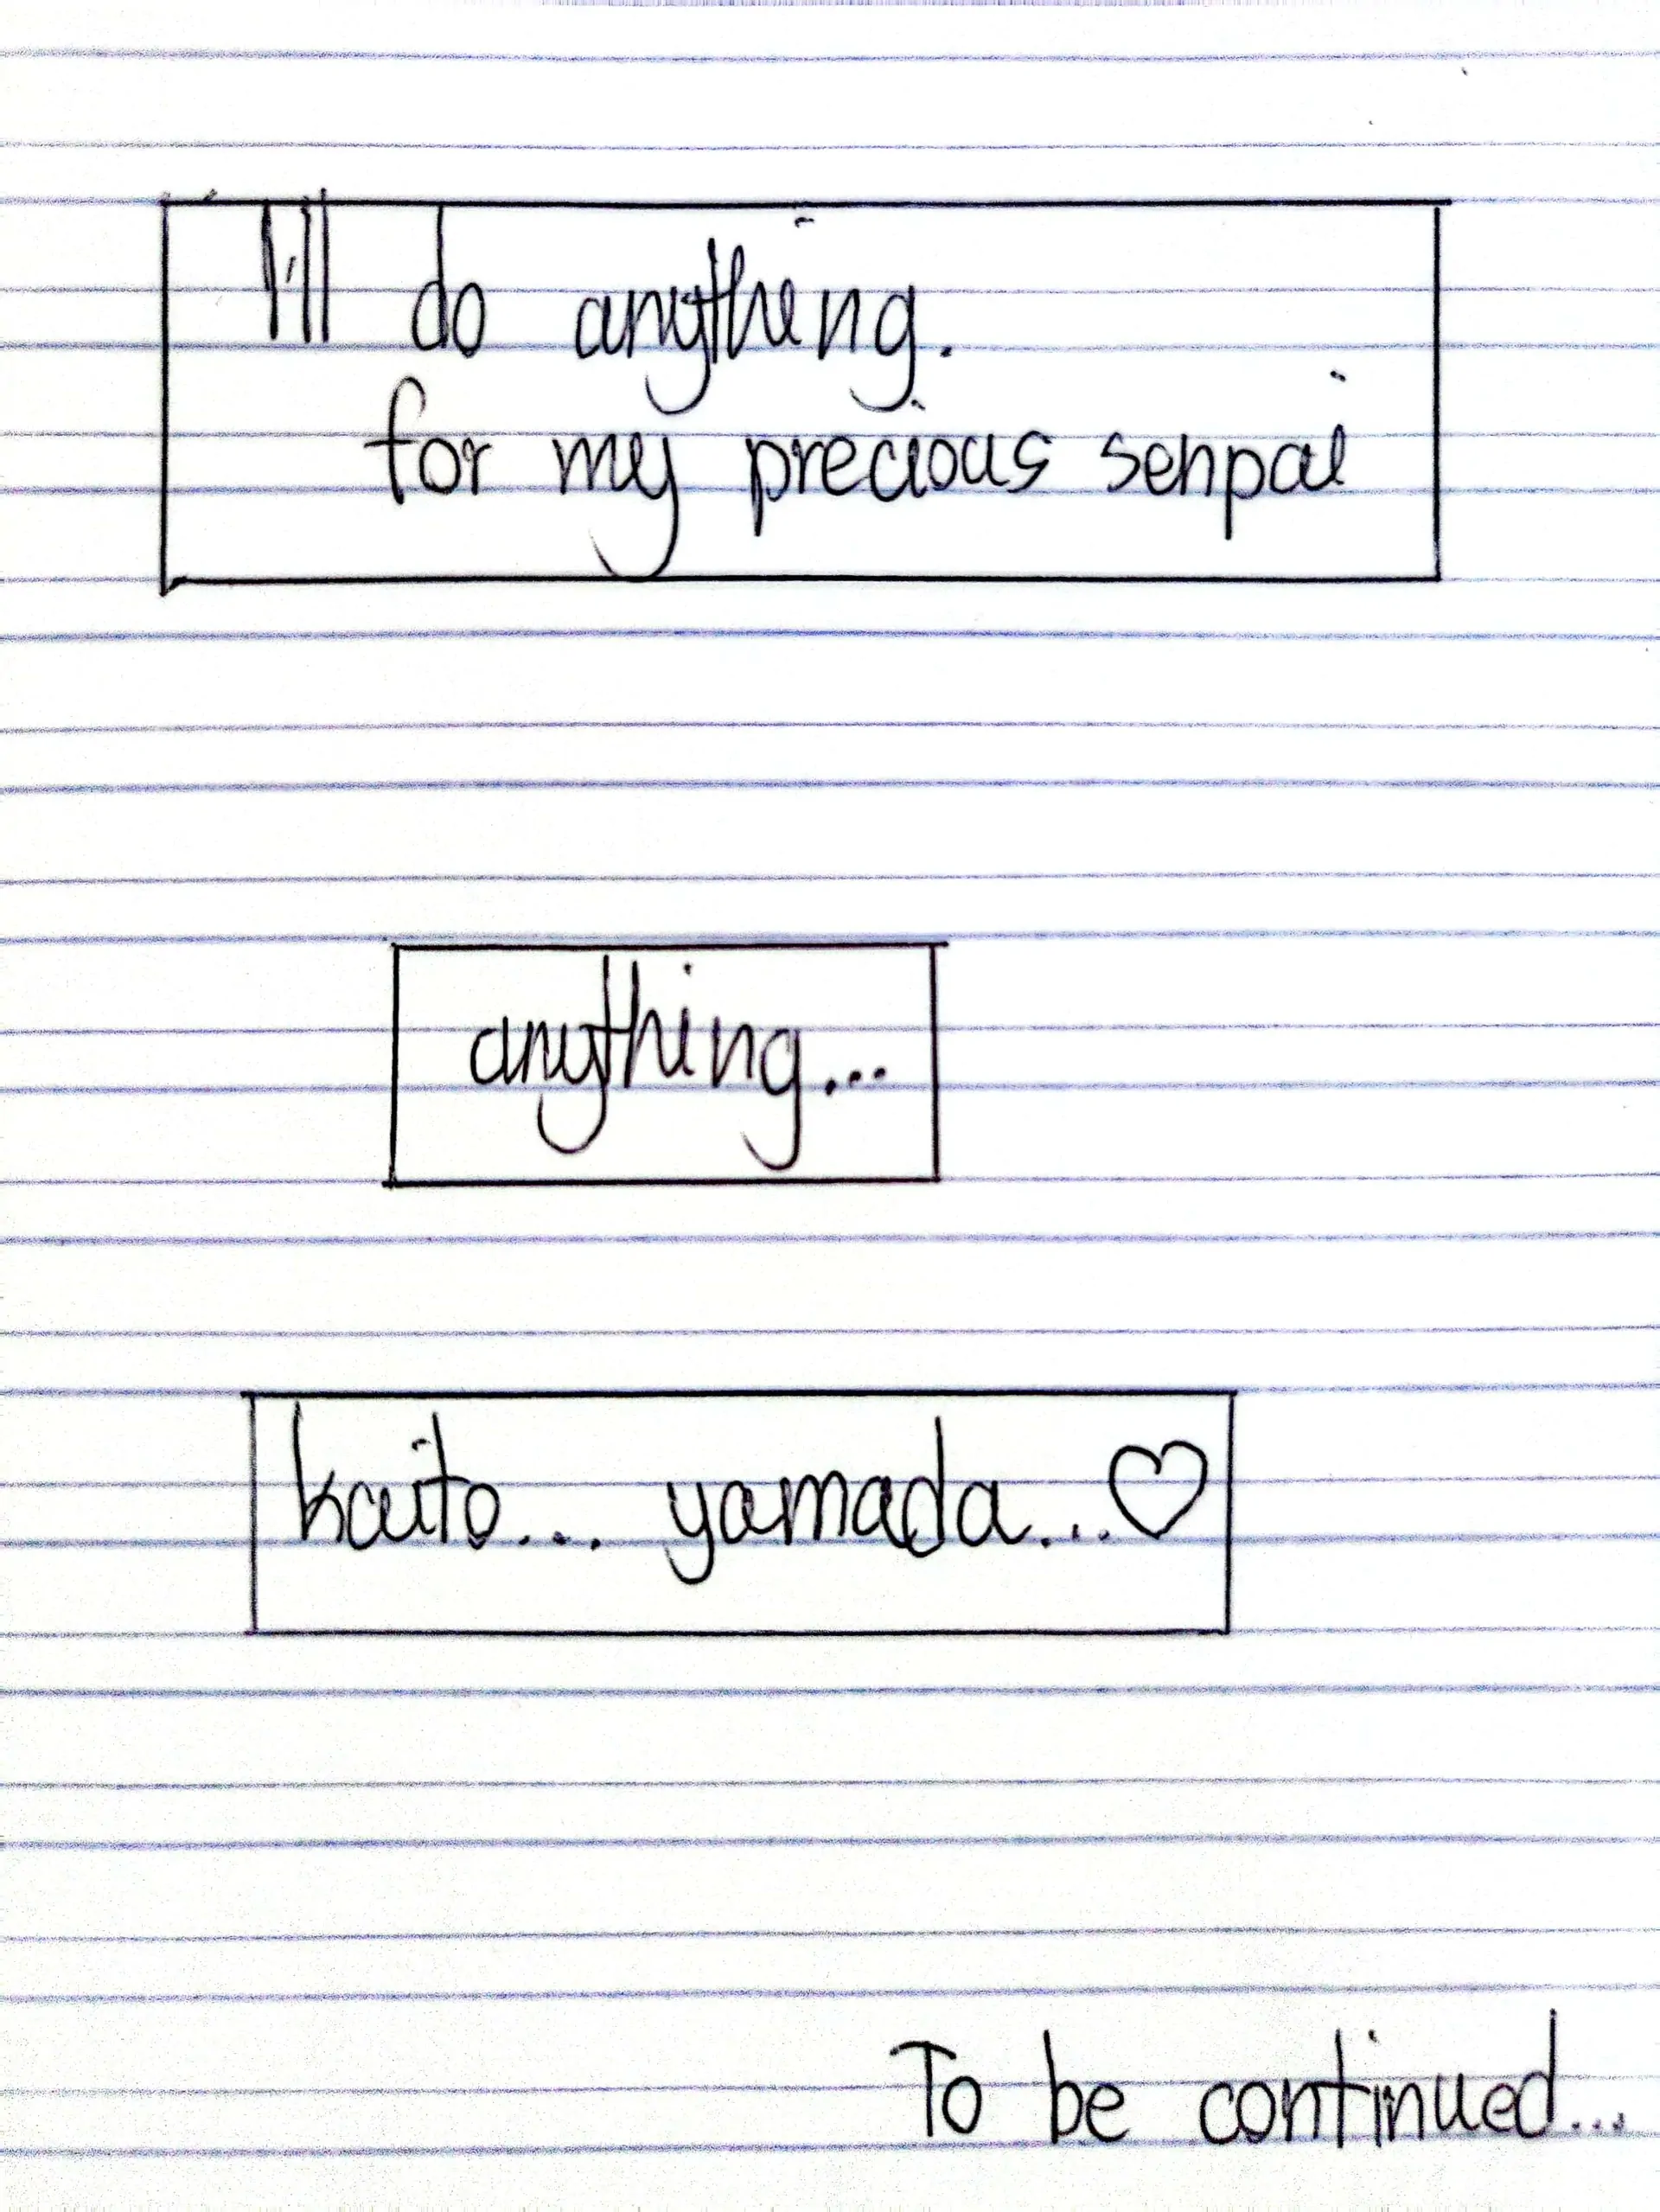 I'll do anything.
for my precious senpai
anything...
kaito... yamada...♡
To be continued...